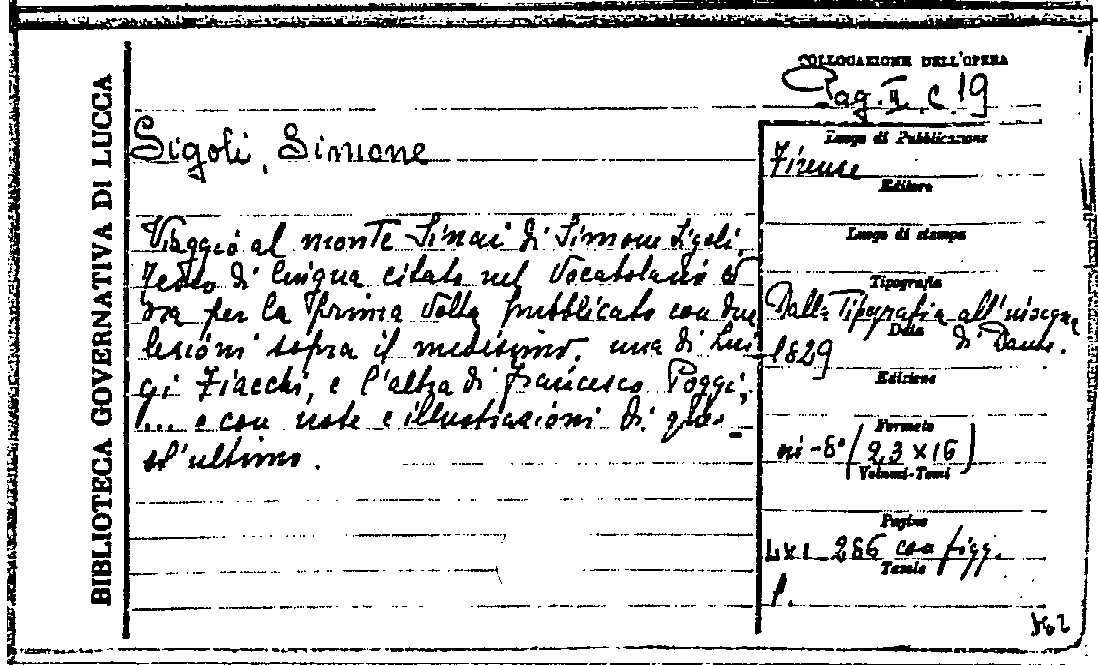 BIBLIOTECA GOVERNATIVA DI LUCCA
COLLOCAZIONE DELL'OPERA
Pag. II. C. 19
Sigoli, Simone
Viaggio al monte Sinai di Simone Sigoli.
Testo di lingua citato nel Vocabolario ed
ora per la prima volta pubblicato con due
lezioni sopra il medesimo, una di Lui
gi Fiacchi, e l'altra di Francesco Poggi,
... e con note e illustrazioni di
l'ultimo.
Luogo di Pubblicazione
Firenze
Editore
Luogo di stampa
Tipografia
Dalla Tipografia all'insegna
di Dante.
Data
1829
Edizione
Formato
in-8° (23 x 16)
Volumi-Tomi
Pagine
LXI 286 con figg.
Tavole
1.